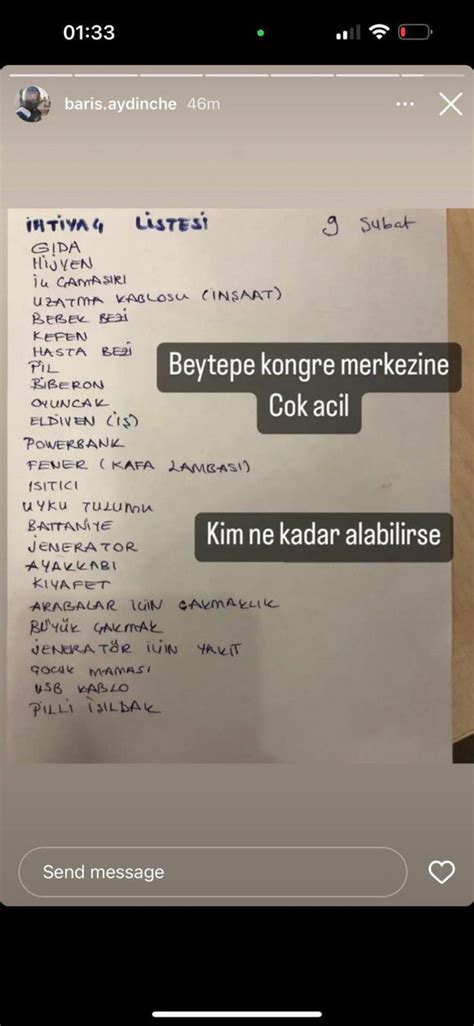 01:33
baris.aydinche 46m
İHTİYAÇ LİSTESİ 9 Şubat
GIDA
HİJYEN
İÇ ÇAMAŞIRI
UZATMA KABLOSU (İNŞAAT)
BEBEK BEZİ
KEFEN
HASTA BEZİ
PİL
BİBERON
OYUNCAK
ELDİVEN (İŞ)
POWERBANK
FENER (KAFA LAMBASI)
ISITICI
UYKU TULUMU
BATTANİYE
JENERATOR
AYAKKABI
KIYAFET
ARABALAR İÇİN ÇAKMAKLIK
BÜYÜK ÇAKMAK
JENERATÖR İÇİN YAKIT
ÇOCUK MAMASI
USB KABLO
PİLLİ IŞILDAK
Beytepe kongre merkezine
Cok acil
Kim ne kadar alabilirse
Send message